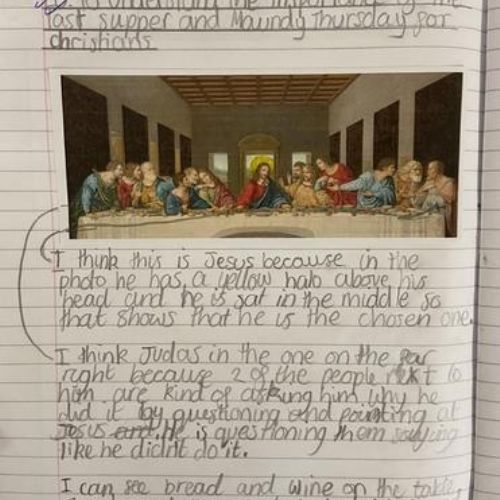 to understand the importance of the
last supper and Maundy Thursday for
christians
I think this is Jesus because in the
photo he has a yellow halo above his
head and he is sat in the middle so
that shows that he is the chosen one.
I think Judas in the one on the far
right because 2 of the people next to
him are kind of asking him why he
did it by questioning and pointing at
Jesus and he is questioning them saying
like he didn't do it.
I can see bread and wine on the table